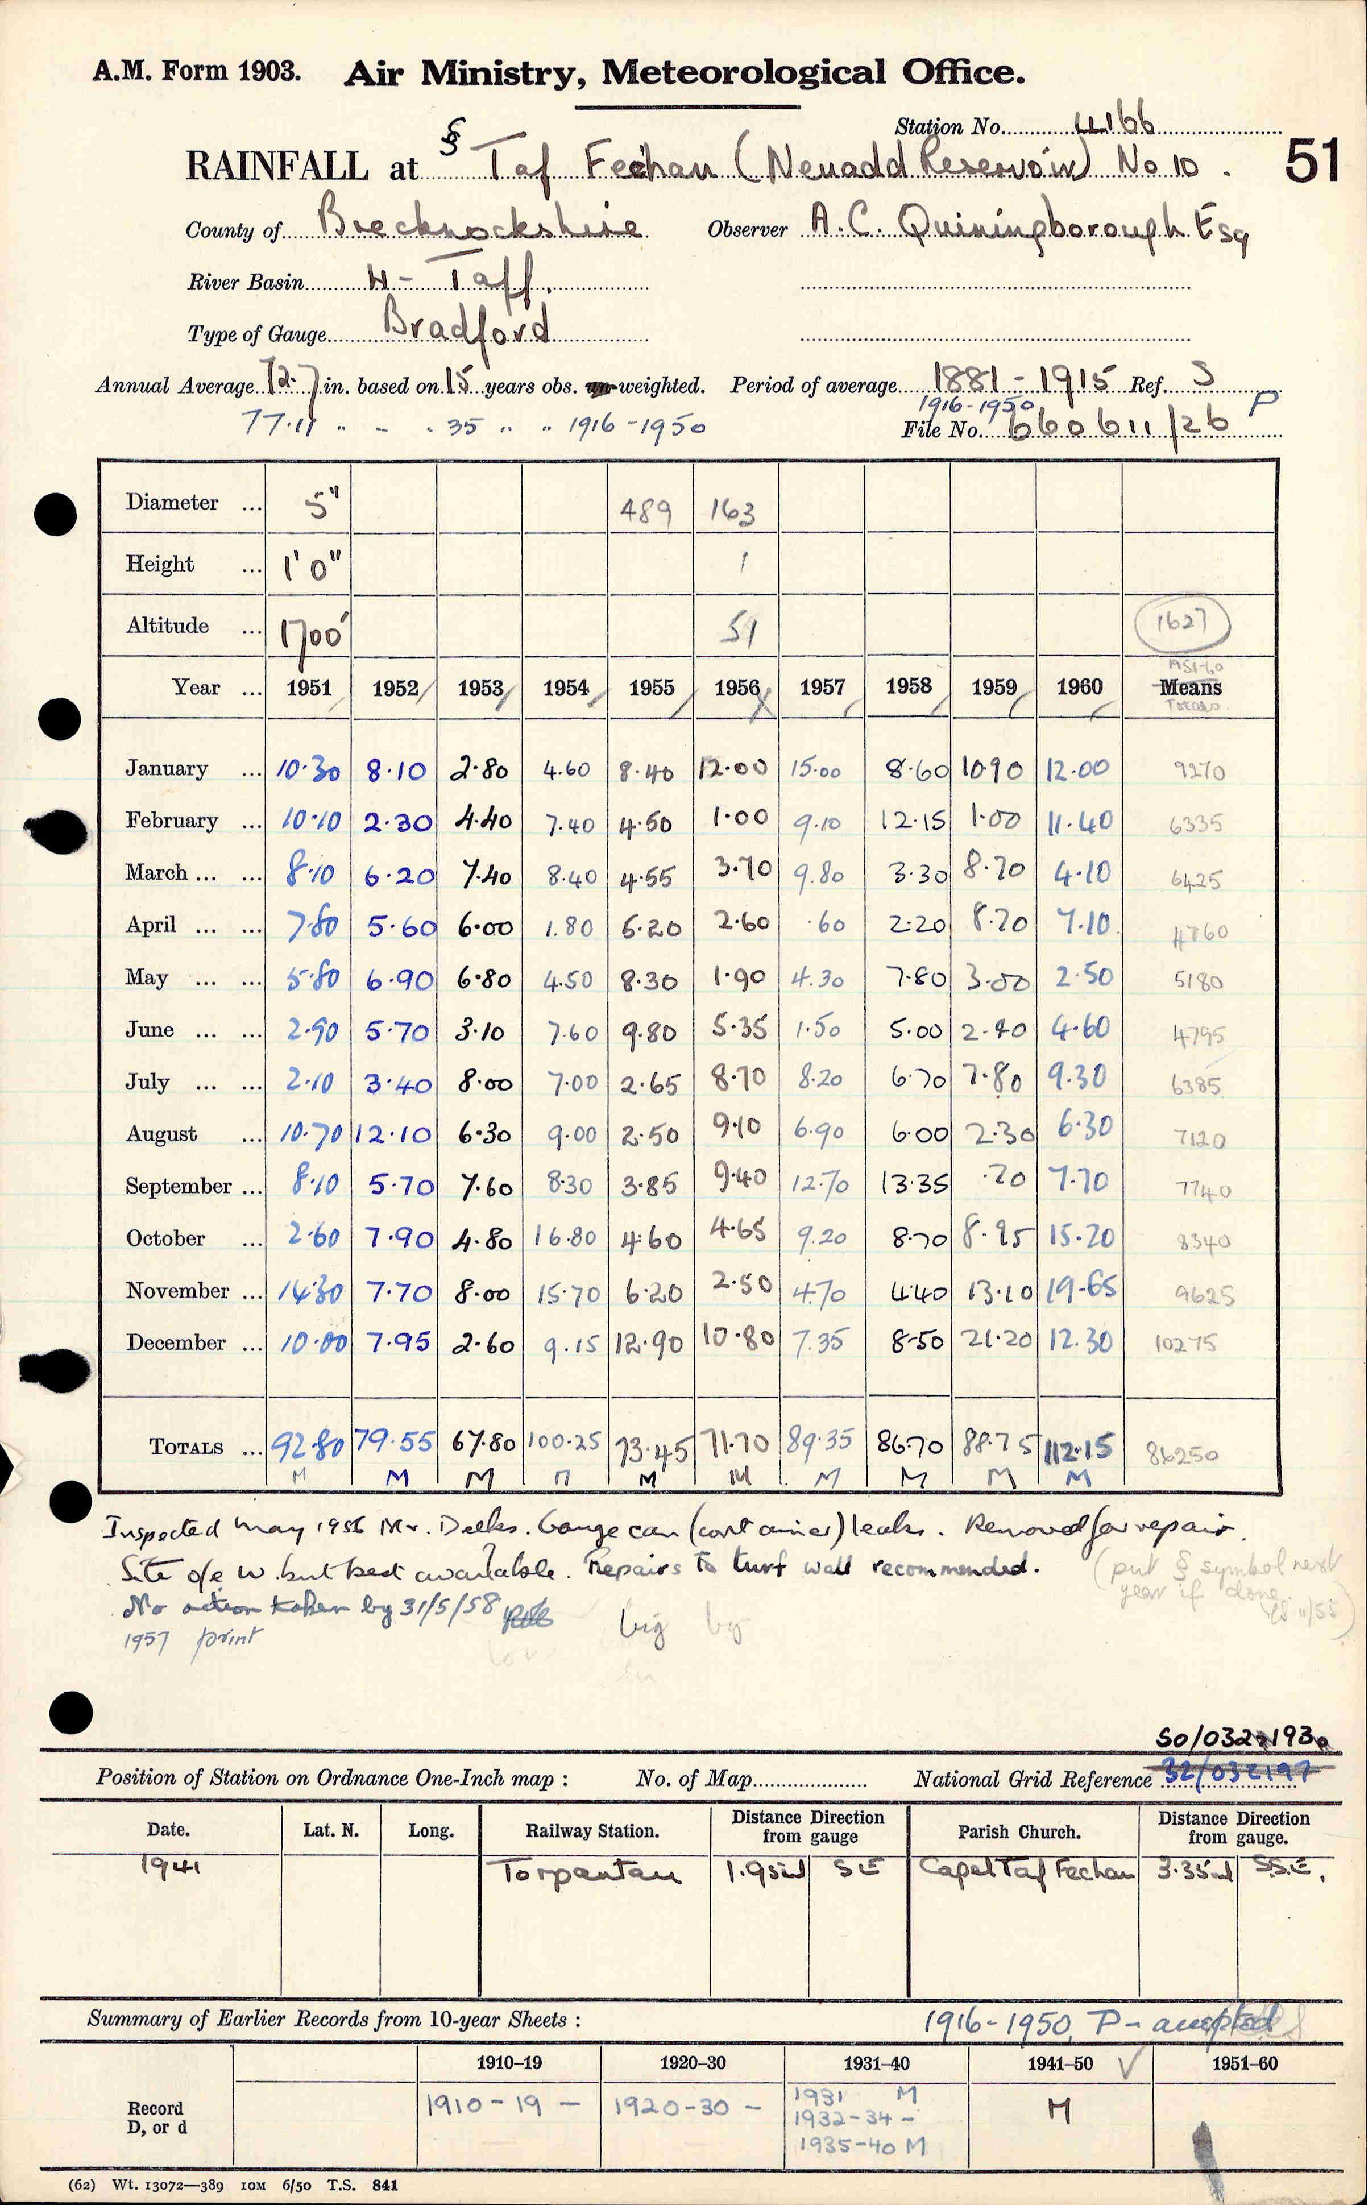 A.M. Form 1903. Air Ministry, Meteorological Office.
Station No. 4166
51
RAINFALL at § Taf Fechan (Neuadd Reservoir) No 10.
County of Brecknockshire Observer A.C. Quiningborough Esq
River Basin H - Taff.
Type of Gauge Bradford
Annual Average 72.7 in. based on 15 years obs. un-weighted. Period of average 1881-1915 Ref. S
1916-1950 P
77.11 " - - " 35 " " " 1916-1950 File No. 660611/26
Diameter ... 5" 489 163
Height ... 1' 0" 1
Altitude ... 1700' 51 1627
1951-60
Year ... 1951 1952 1953 1954 1955 1956 1957 1958 1959 1960 Means
Totals
January ... 10.30 8.10 2.80 4.60 8.40 12.00 15.00 8.60 10.90 12.00 9270
February ... 10.10 2.30 4.40 7.40 4.50 1.00 9.10 12.15 1.00 11.40 6335
March ... ... 8.10 6.20 7.40 8.40 4.55 3.70 9.80 3.30 8.70 4.10 6425
April ... ... 7.80 5.60 6.00 1.80 5.20 2.60 .60 2.20 8.70 7.10 4760
May ... ... 5.80 6.90 6.80 4.50 8.30 1.90 4.30 7.80 3.00 2.50 5180
June ... ... 2.90 5.70 3.10 7.60 9.80 5.35 1.50 5.00 2.40 4.60 4795
July ... ... 2.10 3.40 8.00 7.00 2.65 8.70 8.20 6.70 7.80 9.30 6385
August ... 10.70 12.10 6.30 9.00 2.50 9.10 6.90 6.00 2.30 6.30 7120
September ... 8.10 5.70 7.60 8.30 3.85 9.40 12.70 13.35 .70 7.70 7740
October ... 2.60 7.90 4.80 16.80 4.60 4.65 9.20 8.70 8.95 15.20 8340
November ... 14.30 7.70 8.00 15.70 6.20 2.50 4.70 4.40 13.10 19.65 9625
December ... 10.00 7.95 2.60 9.15 12.90 10.80 7.35 8.50 21.20 12.30 10275
TOTALS ... 92.80 79.55 67.80 100.25 73.45 71.70 89.35 86.70 88.75 112.15 86250
M M M M M M M M M M
Inspected May 1956 Mr. Deeks. Gauge can (container) leaks. Removed for repair.
Site o/e W. but best available. Repairs to turf wall recommended. (put § symbol next
No action taken by 31/5/58 year if done
1957 print big by
SO/032 193
Position of Station on Ordnance One-Inch map : No. of Map National Grid Reference 32/032197
Date. Lat. N. Long. Railway Station. Distance Direction from gauge Parish Church. Distance Direction from gauge.
1941 Torpantau 1.95ml SE Capel Taf Fechan 3.35ml SSE.
Summary of Earlier Records from 10-year Sheets : 1916-1950 P - accepted
1910–19 1920–30 1931–40 1941–50 ✓ 1951–60
Record D, or d 1910-19 - 1920-30 - 1931 M M
1932-34 -
1935-40 M
(62) Wt. 13072—389 10M 6/50 T.S. 841